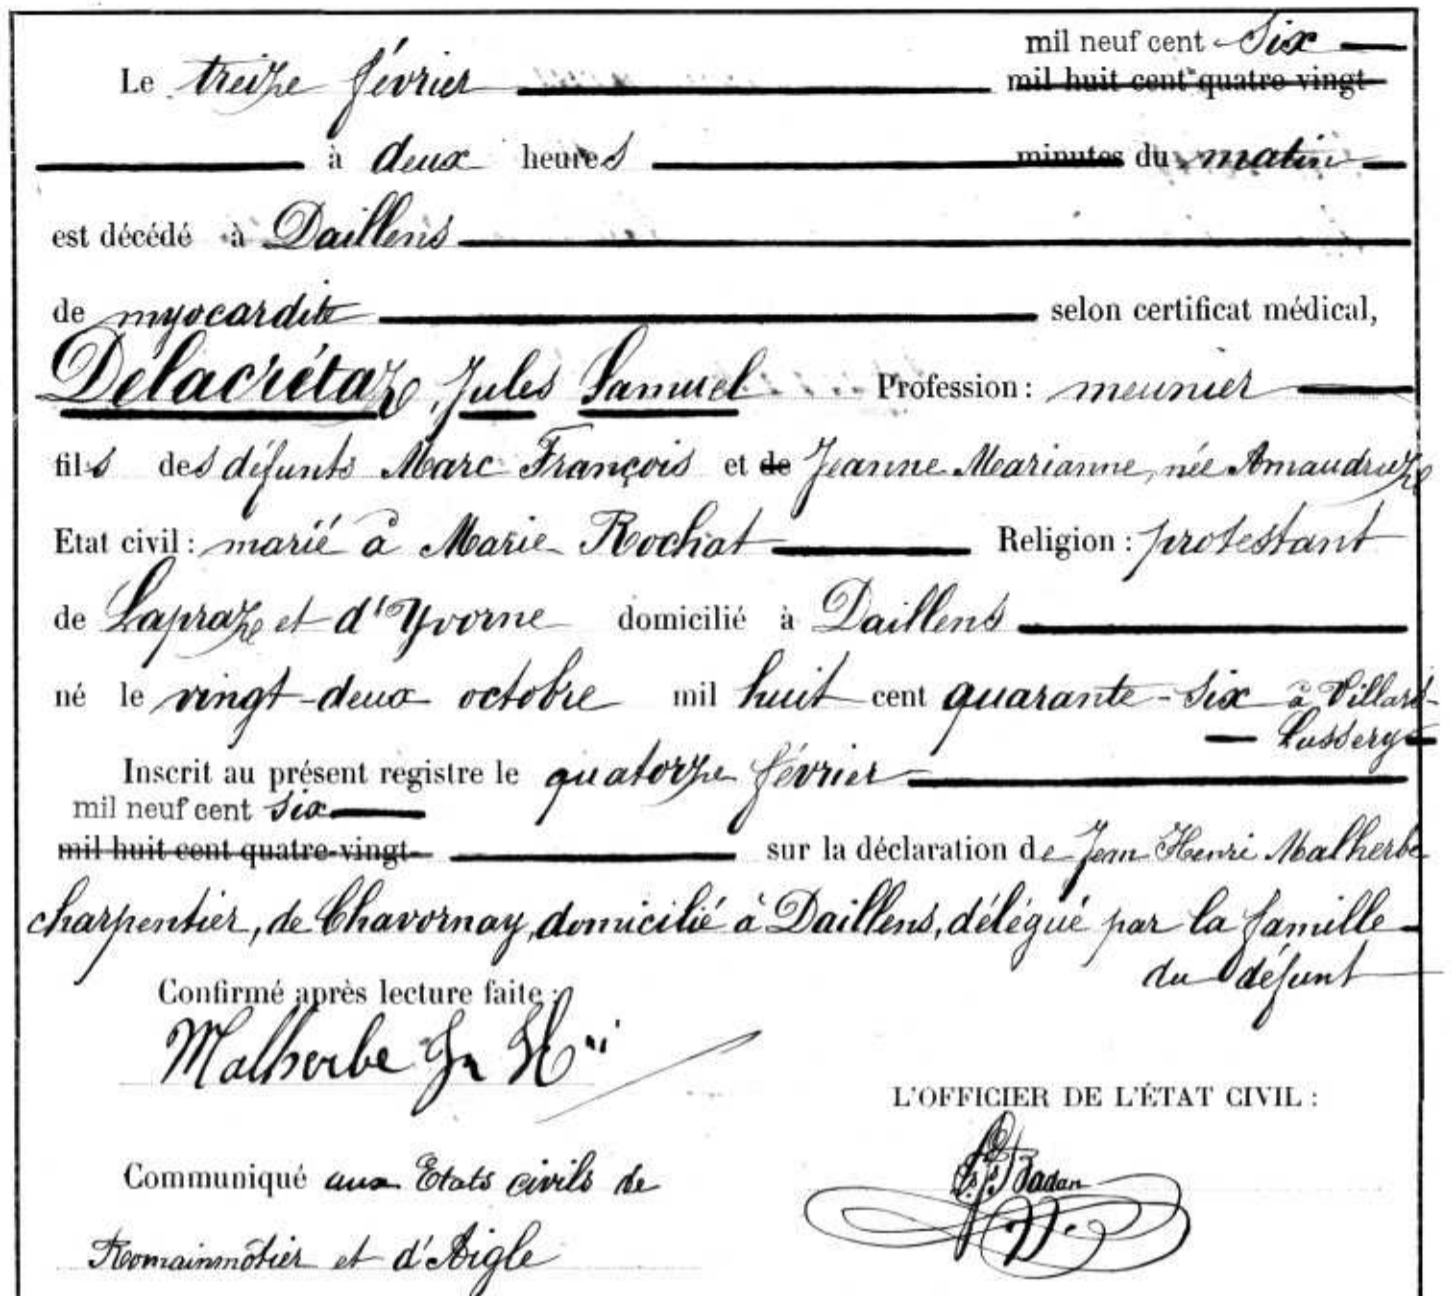 mil neuf cent six
Le treize février mil huit cent quatre-vingt
à deux heures minutes du matin
est décédé à Daillens
de myocardite selon certificat médical,
Delacrétaz, Jules Samuel Profession : meunier
fils des défunts Marc François et de Jeanne Marianne, née Amaudruz
Etat civil : marié à Marie Rochat Religion : protestant
de Lapraz et d'Yvorne domicilié à Daillens
né le vingt-deux octobre mil huit cent quarante-six à Villars-
Lussery
Inscrit au présent registre le quatorze février
mil neuf cent six
mil huit cent quatre-vingt- sur la déclaration de Jean Henri Malherbe
charpentier, de Chavornay, domicilié à Daillens, délégué par la famille
du défunt
Confirmé après lecture faite :
Malherbe Jn Hri
L'OFFICIER DE L'ÉTAT CIVIL :
Badan
Communiqué aux Etats civils de
Romainmôtier et d'Aigle